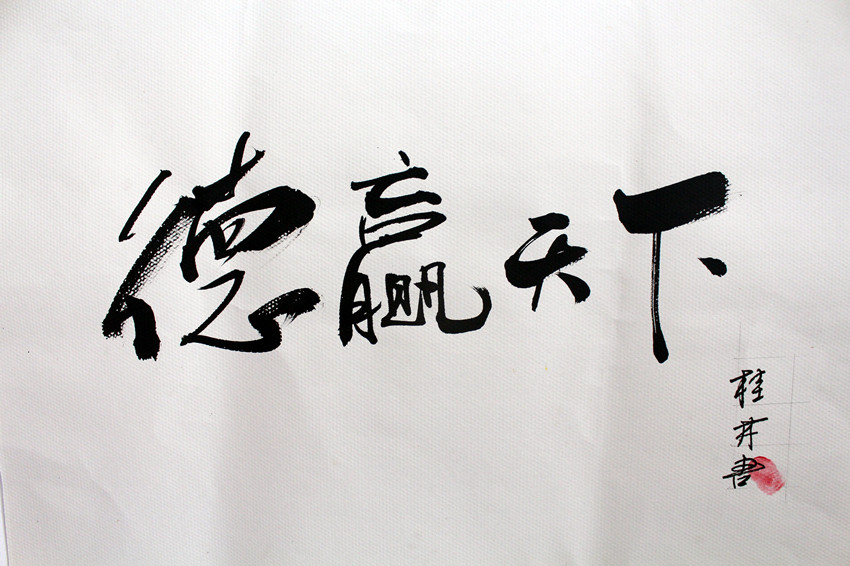 德赢天下
桂井书